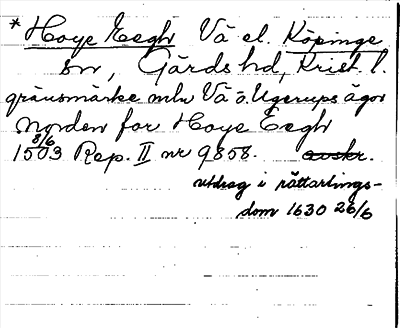 * Hoye Eegh Vä el. Köpinge
sn, Gärds hd, Krist. l.
gränsmärke mln Vä o. Ugerups ägor
Norden for Hoye Eegh
1503 8/6 Rep. II nr 9858. avskr.
utdrag i rättartings-
dom 1630 26/6